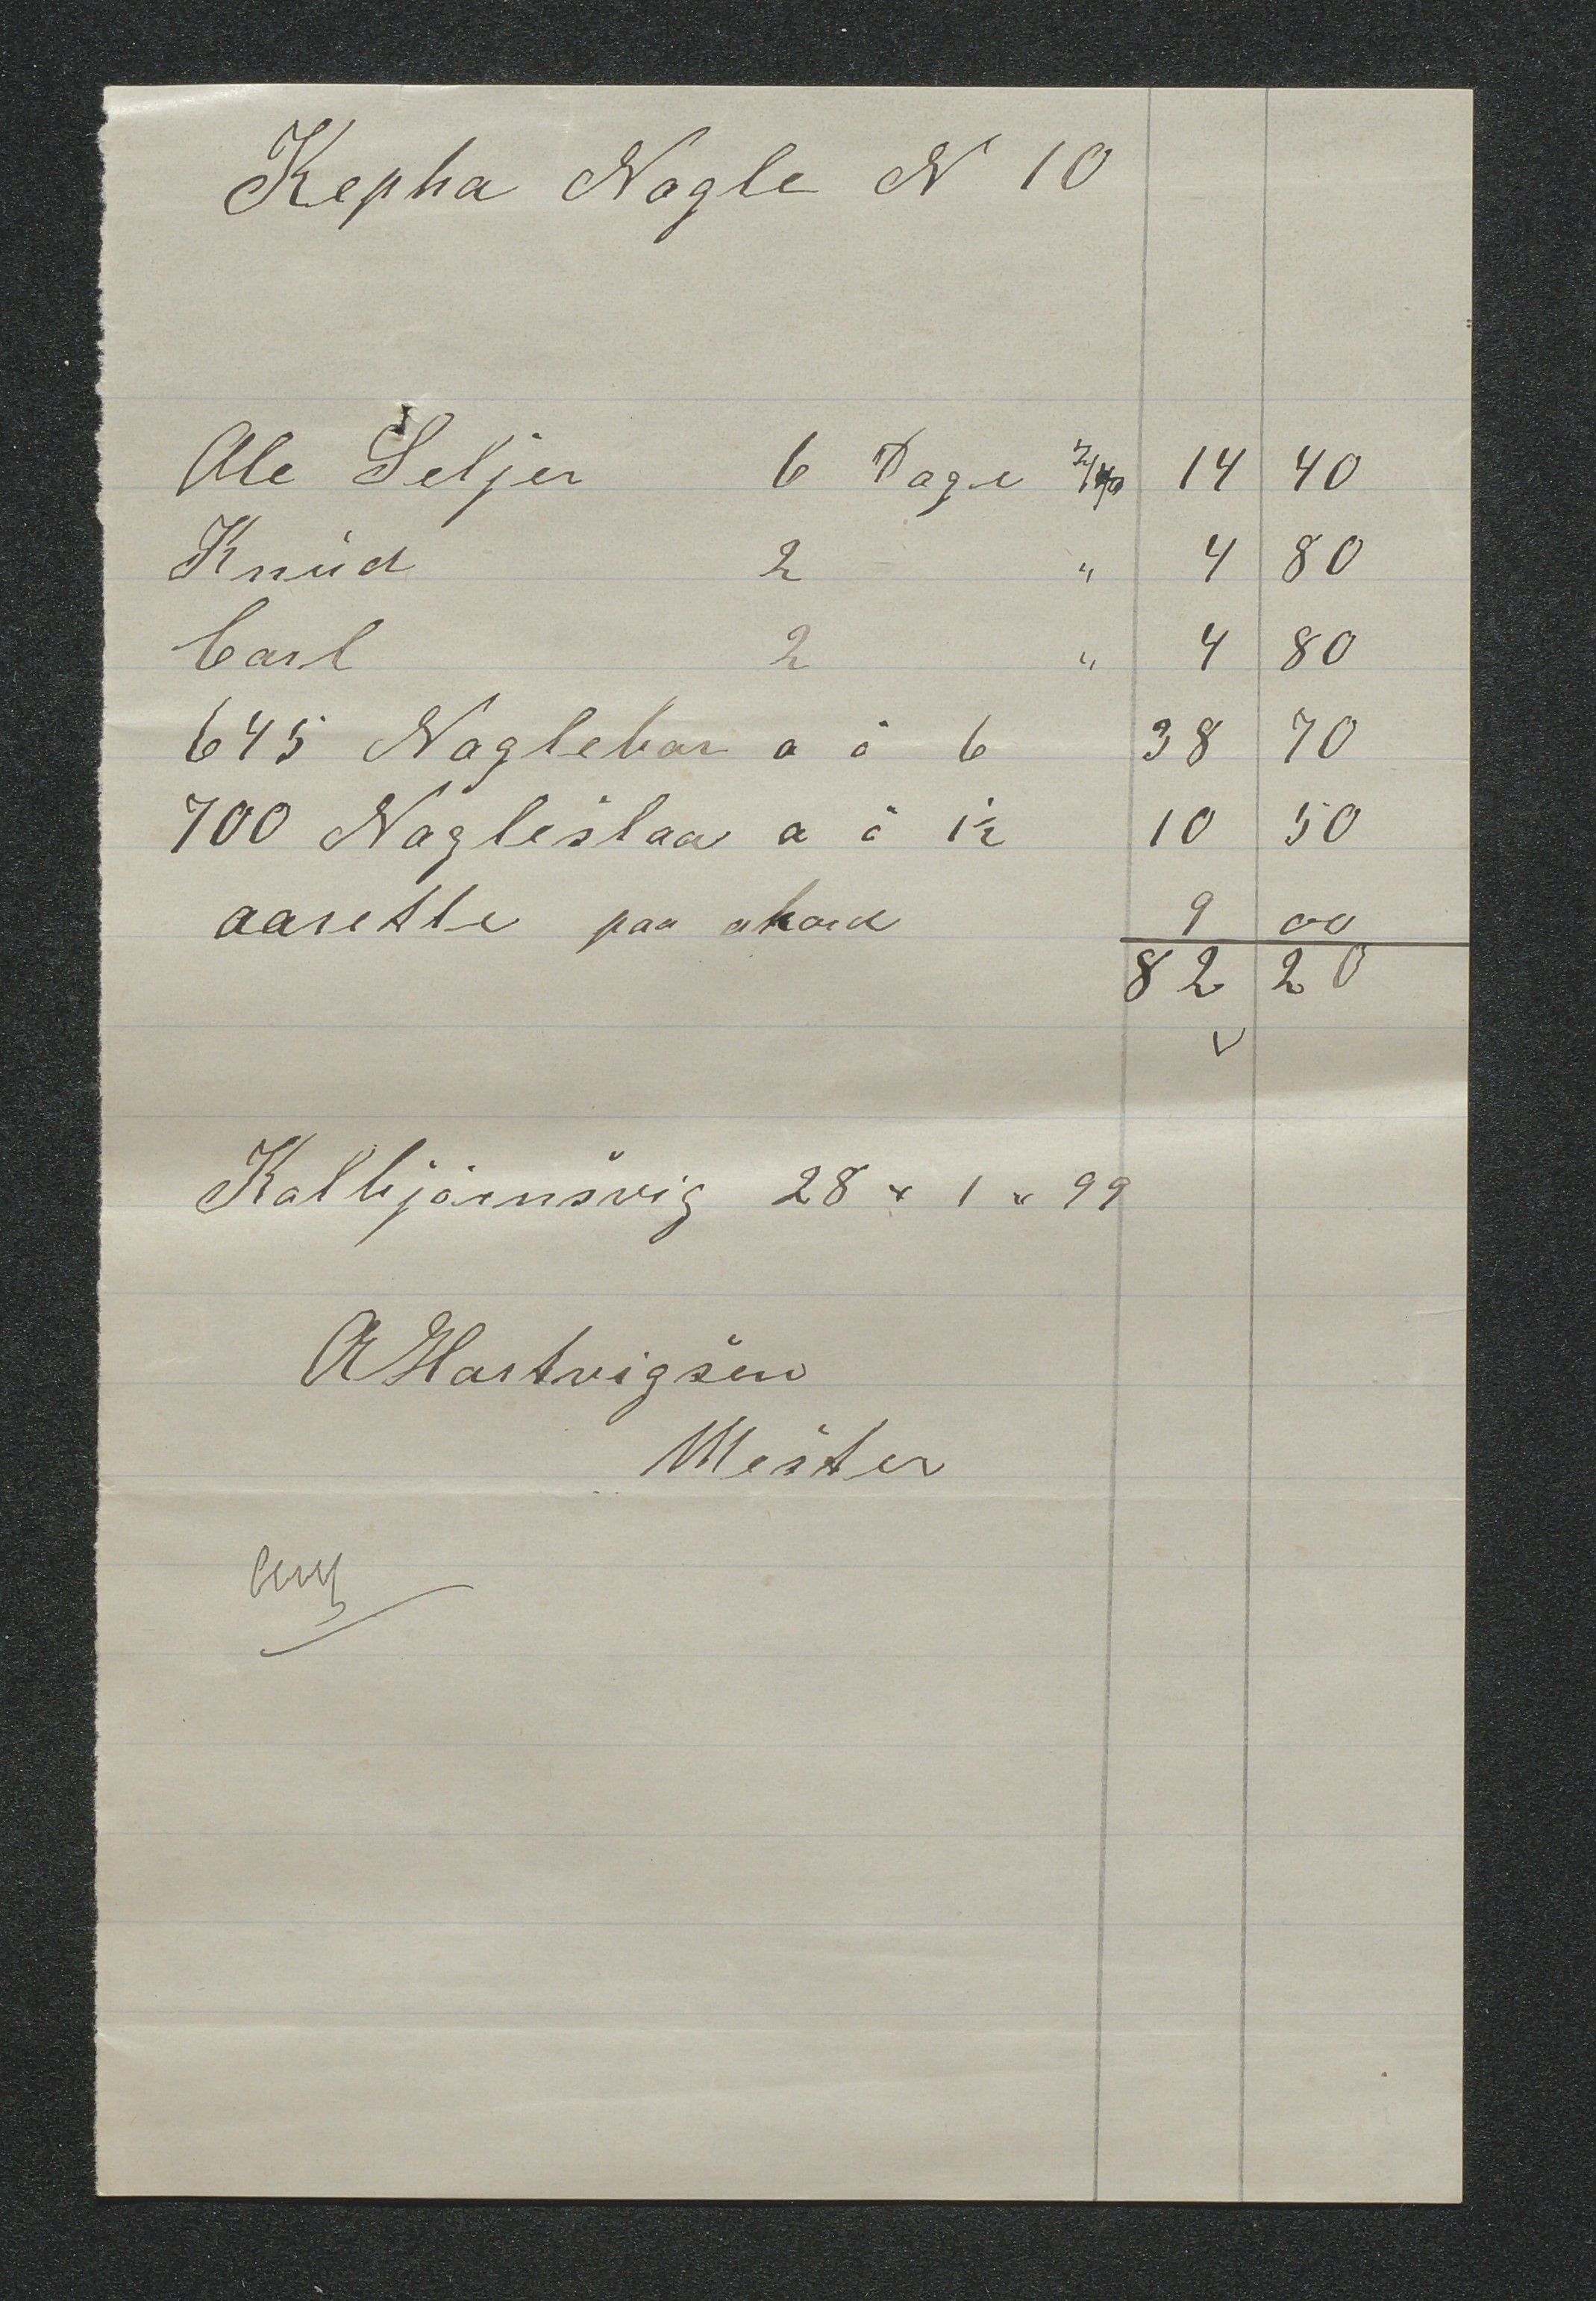 Kepha Nagle N 10
Ole Seljer 6 Dage 2/40 14 40
Knud 2 " 4 80
Carl 2 " 4 80
645 Naglebar a ö 6 38 70
700 Nagleslaa a ö 1½ 10 50
aarette paa akord 9 00
82 20
Kolbjörnsvig 28 × 1 × 99
A Hartvigsen
Mester